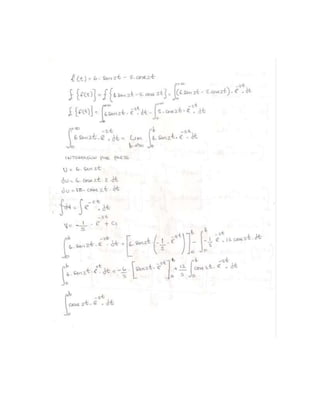 f(t) = 6·sen2t − 5·cos2t
£{f(t)} = £{6sen2t − 5·cos2t} = ∫₀^{+∞} (6sen2t − 5·cos2t)·e^{-st}·dt
£{f(t)} = ∫₀^{+∞} 6sen2t·e^{-st}·dt − ∫₀^{∞} 5·cos2t·e^{-st}·dt
∫₀^{+∞} 6sen2t·e^{-st}·dt = Lim_{b→∞} ∫₀^{b} 6sen2t·e^{-st}·dt
INTEGRACION POR PARTES
U = 6·sen2t
du = 6·cos2t·2·dt
du = 12·cos2t·dt
∫dv = ∫e^{-st}·dt
v = −1/s·e^{-st} + C₁
∫₀^{b} 6·sen2t·e^{-st}·dt = [6sen2t·(−1/s·e^{-st})]₀^{b} − ∫₀^{b} −1/s·e^{-st}·12cos2t·dt
∫₀^{b} 6·sen2t·e^{-st}·dt = −6/s·[sen2t·e^{-st}]₀^{b} + 12/s·∫₀^{b} cos2t·e^{-st}·dt
∫₀^{b} cos2t·e^{-st}·dt